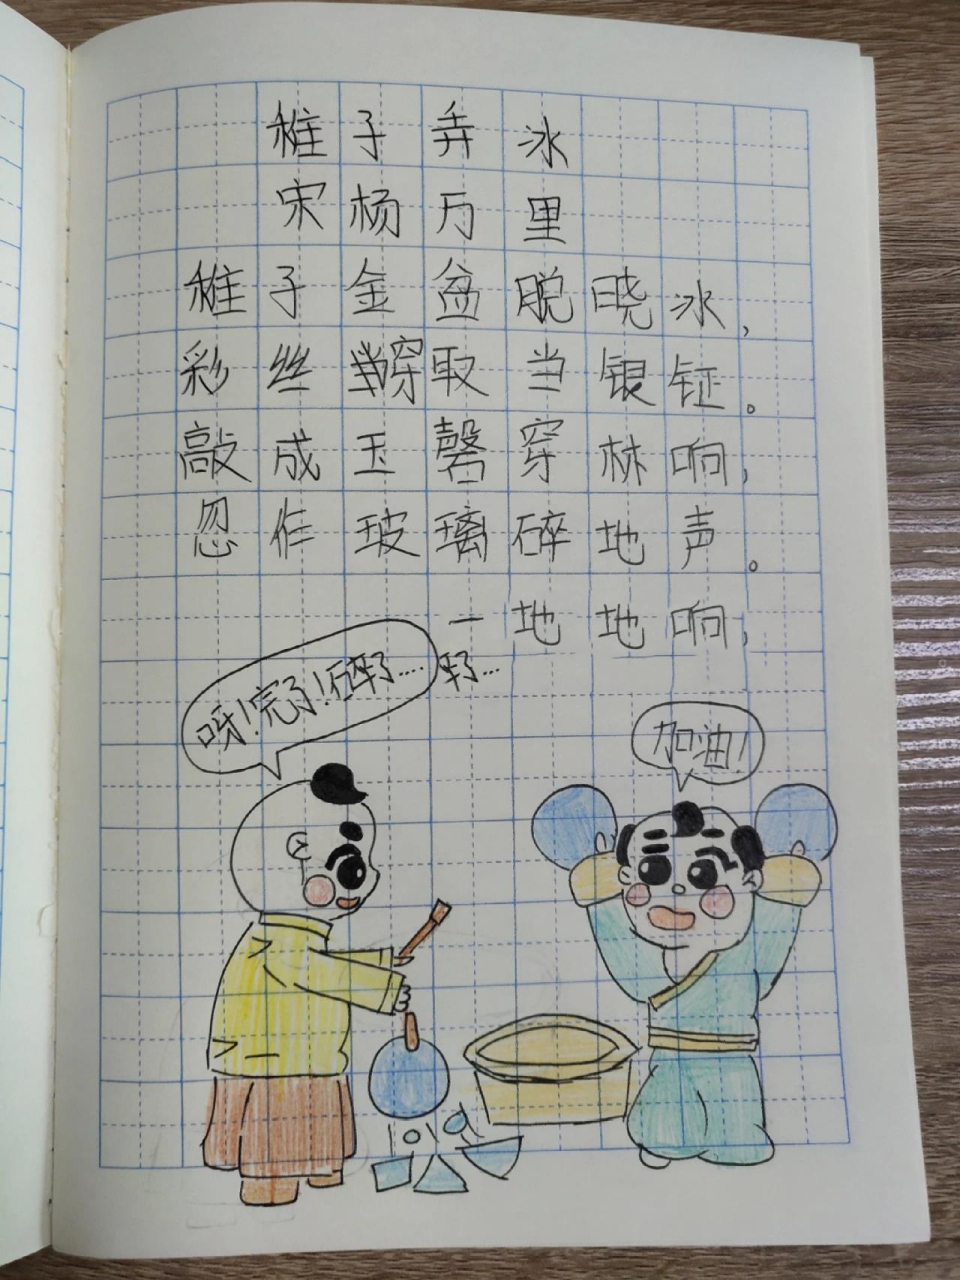 稚子弄冰
宋杨万里
稚子金盆脱晓冰，
彩丝穿取当银钲。
敲成玉磬穿林响，
忽作玻璃碎地声。
一地地响，
呀！完了！碎了…
碎了…
加油！